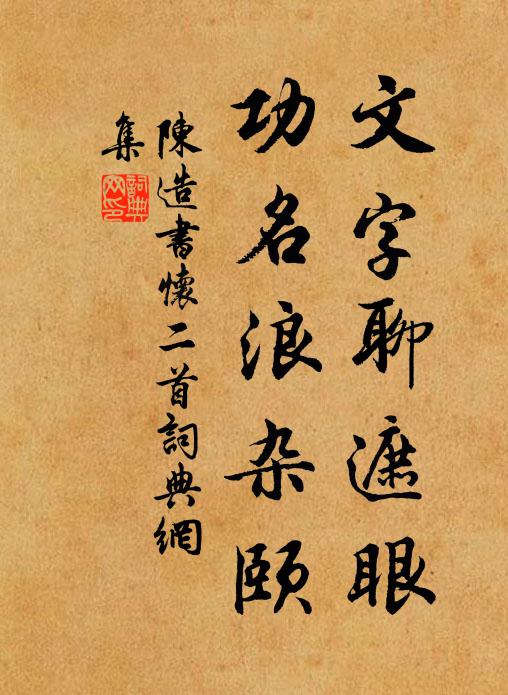 文字聊遮眼
功名浪杂頤
陳造書懷二首詞典網
集
詞典
网印